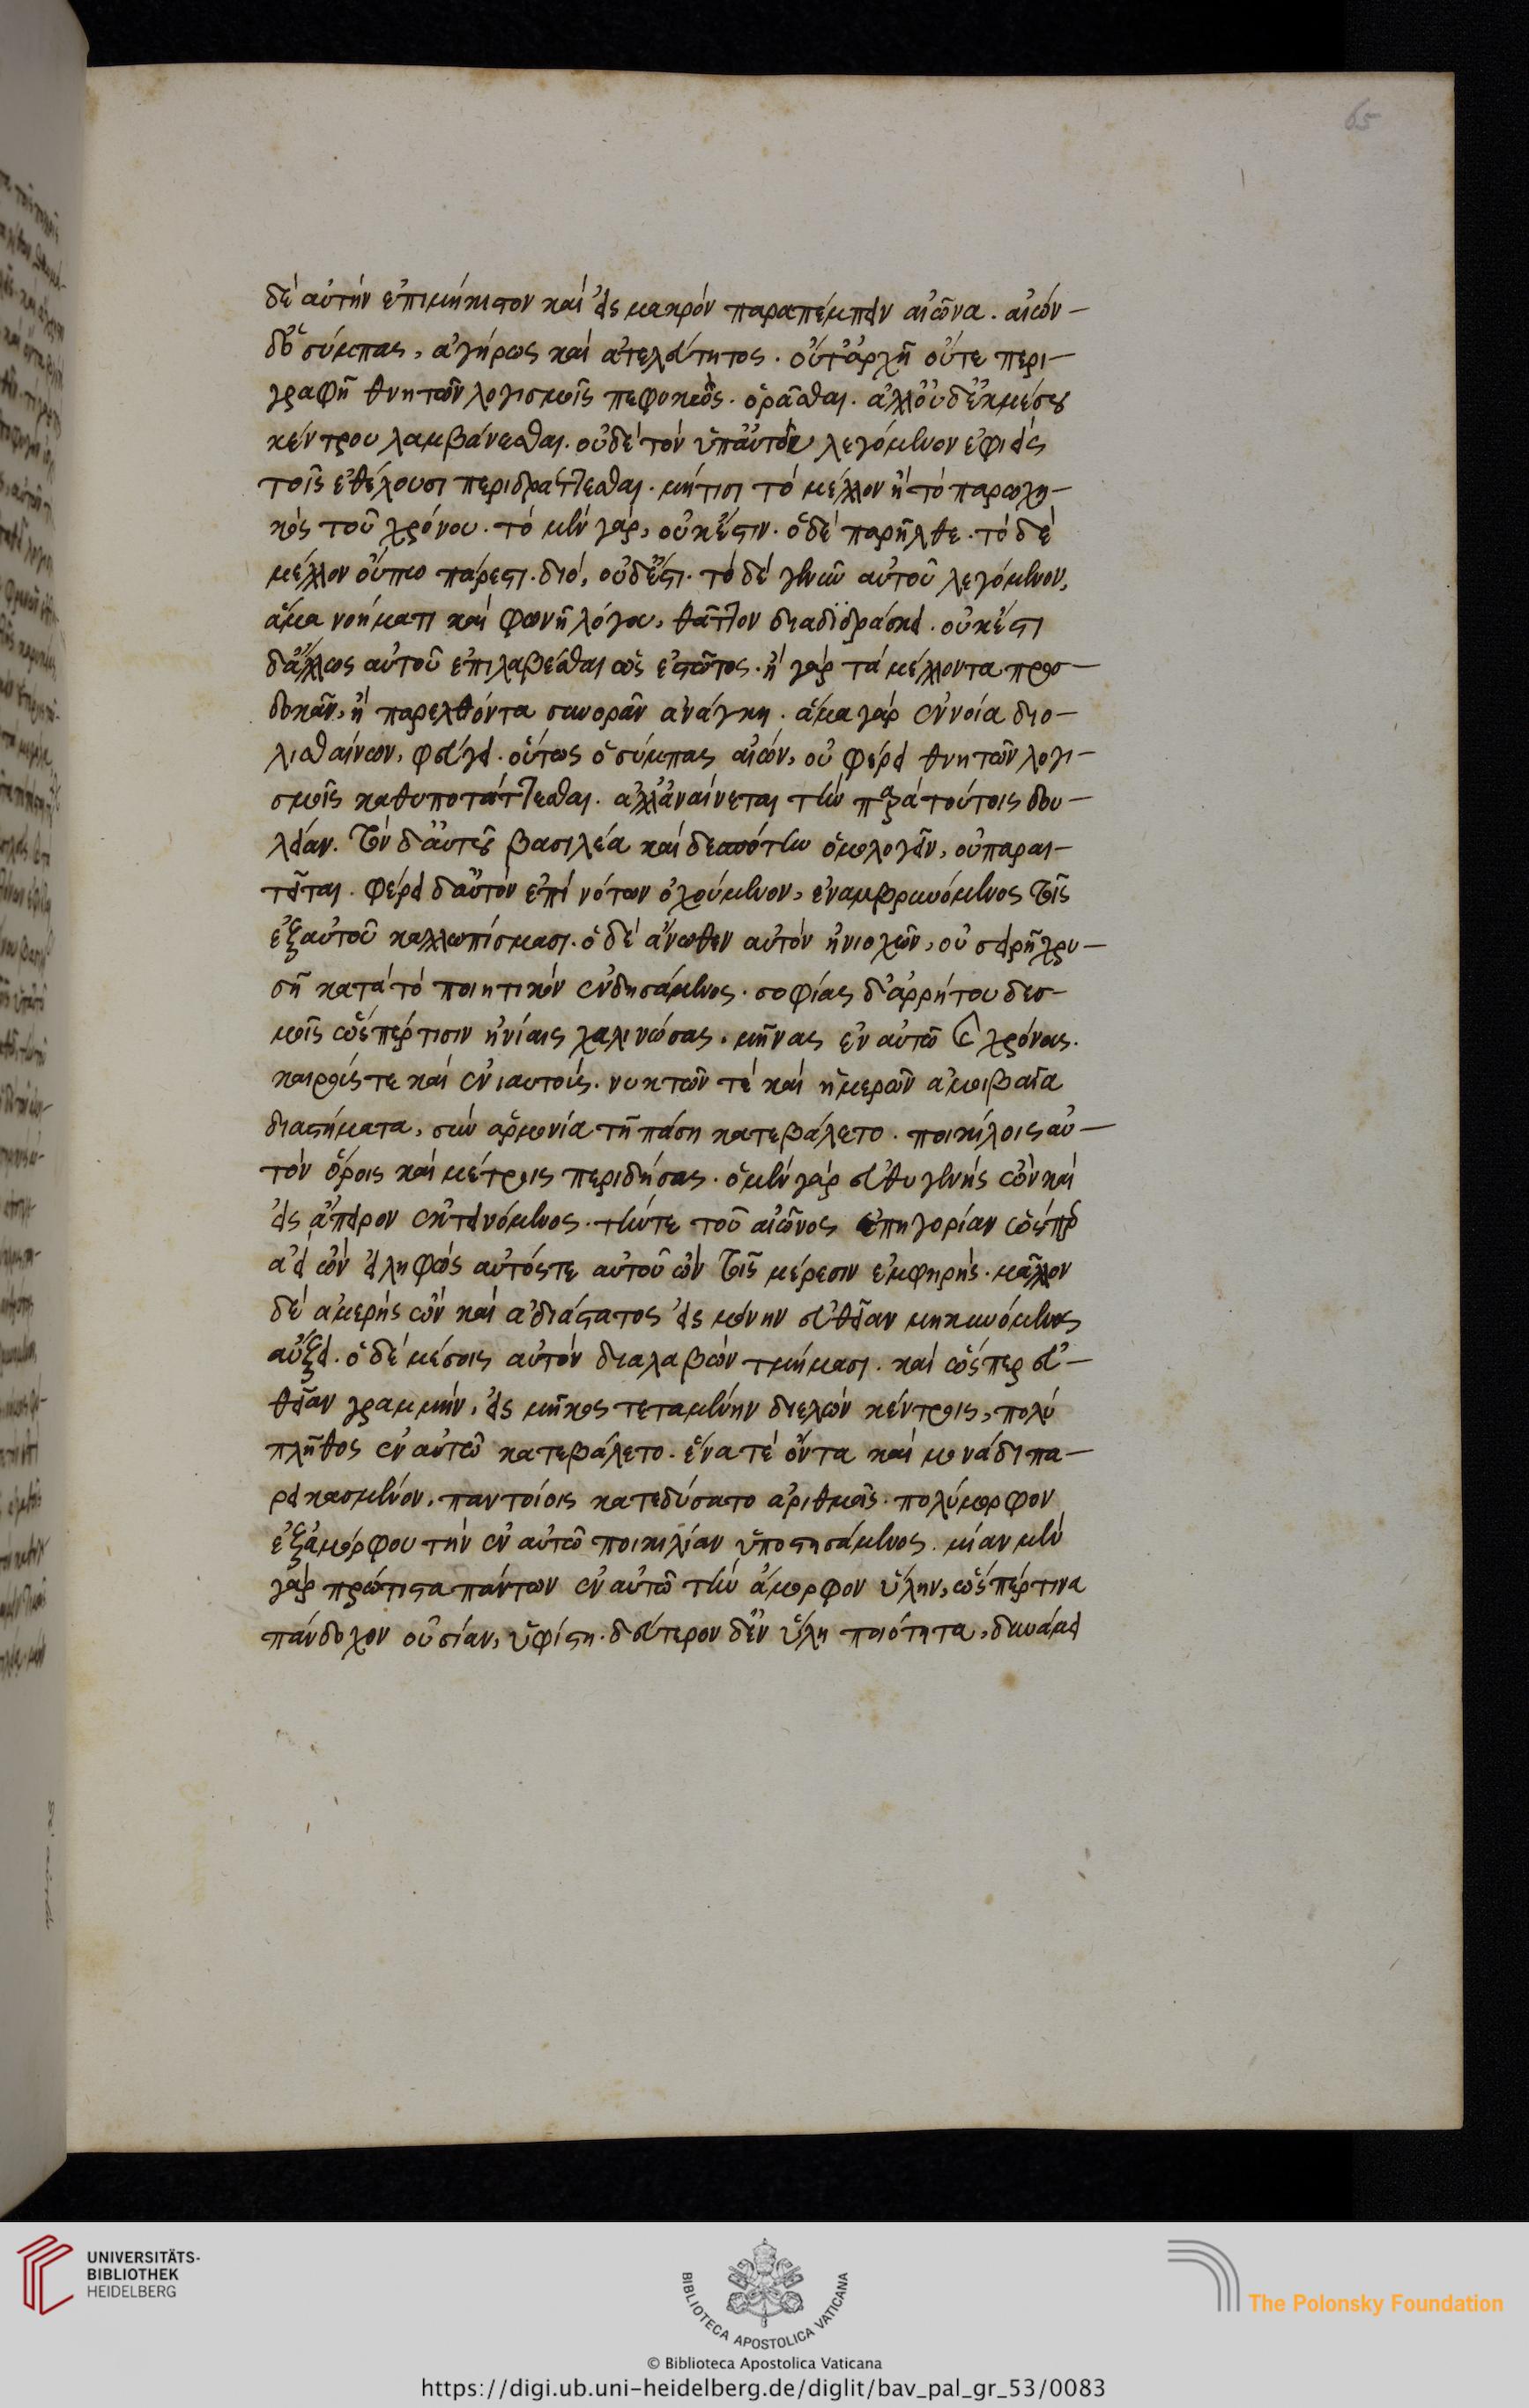 65
δὲ αὐτὴν ἐπιμήκιστον καὶ εἰς μακρὸν παραπέμπειν αἰῶνα. αἰὼν
δ' ὁ σύμπας, ἀγήρως καὶ ἀτελεύτητος. οὔτ' ἀρχῇ οὔτε περι-
γραφῇ θνητῶν λογισμοῖς πεφυκὼς. ὁρᾶσθαι. ἀλλ' οὐδ' ἐκ μέσου
κέντρου λαμβάνεσθαι. οὐδὲ τὸν ὑπ' αὐτοῦ λεγόμενον ἐφιεὶς
τοῖς ἐθέλουσι περιδράττεσθαι. μήτισι τὸ μέλλον ἢ τὸ παρῳχη-
κὸς τοῦ χρόνου. τὸ μὲν γὰρ, οὐκέστιν. ὃ δὲ παρῆλθε. τὸ δὲ
μέλλον οὔπω πάρεστι. διό, οὐδ' ἔστι. τὸ δὲ γενικῶ αὐτοῦ λεγόμενον,
ἅμα νοήματι καὶ φωνῇ λόγου, θᾶττον διαδϊδράσκει. οὐκέστι
δ' ἄλλως αὐτοῦ ἐπιλαβέσθαι ὡς ἑστῶτος. ἢ γὰρ τὰ μέλλοντα προσ-
δοκᾶν, ἢ παρελθόντα συνορᾶν ἀνάγκη. ἅμα γὰρ ἐννοία διο-
λισθαίνων, φεύγει. οὕτως ὁ σύμπας αἰών, οὐ φέρει θνητῶν λογι-
σμοῖς καθυποτάττεσθαι. ἀλλ' ἀναίνεται τὴν παρὰ τούτοις δου-
λείαν. τὸν δ' αὐτοῦ βασιλέα καὶ δεσπότην ὁμολογεῖν, οὐ παραι-
τεῖται. φέρει δ' αὐτὸν ἐπὶ νότων ὀχούμενον, ἐναμβρυνόμενος τοῖς
ἐξ αὐτοῦ καλλωπίσμασι. ὁ δὲ ἄνωθεν αὐτὸν ἡνιοχῶν, οὐ σειρῇ χρυ-
σῇ κατὰ τὸ ποιητικὸν ἐνδησάμενος. σοφίας δ' ἀρρήτου δεσ-
μοῖς ὥσπέρ τισιν ἡνίαις χαλινώσας. μῆνας ἐν αὐτῶ καὶ χρόνους.
καιρούς τε καὶ ἐνιαυτοὺς. νυκτῶν τὲ καὶ ἡμερῶν ἀμοιβαῖα
διαστήματα, σὺν ἁρμονία τῇ πάσῃ κατεβάλετο. ποικίλοις αὐ-
τὸν ὅροις καὶ μέτροις περιδήσας. ὁ μὲν γὰρ εὐθυγενὴς ὢν καὶ
εἰς ἄπειρον ἐκτεινόμενος. τήν τε τοῦ αἰῶνος ἐπηγορίαν ὥσπερ
ἀεὶ ὢν εἰληφὼς αὐτός τε αὐτοῦ ὢν τοῖς μέρεσιν ἐμφερὴς. μᾶλλον
δὲ ἀμερὴς ὢν καὶ ἀδιάστατος εἰς μόνην εὐθεῖαν μηκυνόμενος
αὔξει. ὁ δὲ μέσοις αὐτὸν διαλαβὼν τμήμασι. καὶ ὥσπερ εὐ-
θεῖαν γραμμὴν, εἰς μῆκος τεταμένην διελὼν κέντροις, πολὺ
πλῆθος ἐν αὐτῶ κατεβάλετο. ἕνα τὲ ὄντα καὶ μονάδι πα-
ρεικασμένον, παντοίοις κατεδύσατο ἀριθμοῖς. πολύμορφον
ἐξ ἀμόρφου τὴν ἐν αὐτῶ ποικιλίαν ὑποστησάμενος. μίαν μὲν
γὰρ πρώτιστα πάντων ἐν αὐτῶ τὴν ἄμορφον ὕλην, ὥσπέρ τινα
πάνδοχον οὐσίαν, ὑφίστη. δεύτερον δ' ἐν ὕλῃ ποιότητα, δυνάμει
UNIVERSITÄTS-
BIBLIOTHEK
HEIDELBERG
BIBLIOTECA APOSTOLICA VATICANA
The Polonsky Foundation
© Biblioteca Apostolica Vaticana
https://digi.ub.uni-heidelberg.de/diglit/bav_pal_gr_53/0083